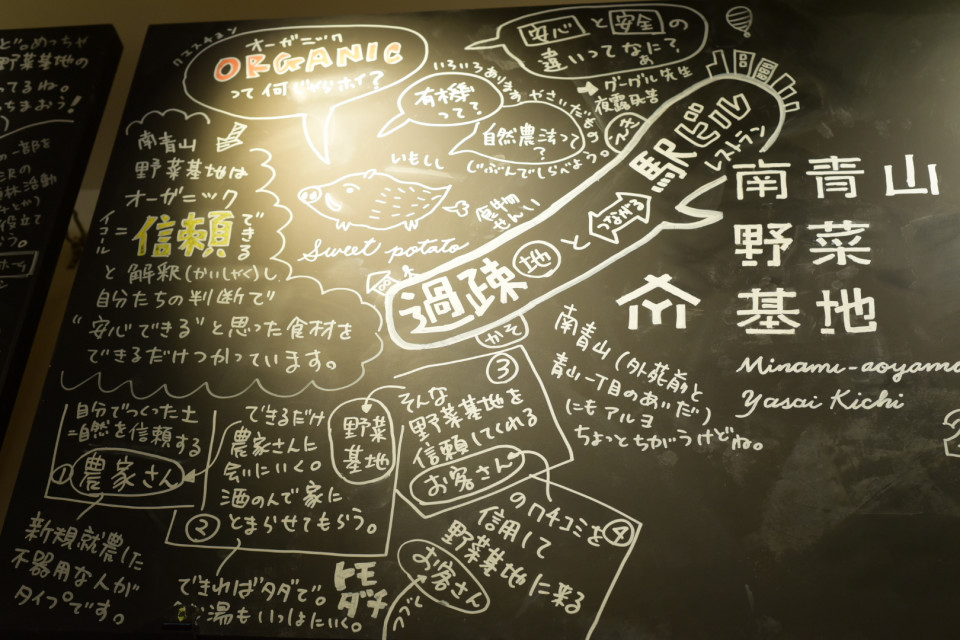 ど"。めっちゃ
野菜基地の
ってるね。
っちまおう!
クエスチョン
オーガニック
ORGANIC
って何じゃらホイ?
安心と安全の
違いってなんに?
グーグル先生
いろいろあります
有機って?
やさいだねぇ
自然農法って?
じぶんでしらべよう。
南青山
野菜基地は
オーガニック
イコールニ
信頼できる
と解釈(かいしゃく)し、
自分たちの判断で
"安心できる"と思った食材を
できるだけつかっています。
いもしし
食物せんい
Sweet potato
過疎地とつながる駅ビル
レストラン
かそ
南青山
野菜
基地
Minami-aoyama
Yasai Kichi
南青山(外苑前と
青山一丁目のあいだ)
にもアルヨ
ちょっとちがうけどね。
自分でつくった土
=自然を信頼する
①農家さん
新規就農した
不器用な人が
タイプです。
できるだけ
農家さんに
会いにいく。
酒のんで家に
②とまらせてもらう。
できればタダで。
湯もいっしょにいく。
トモダチ
野菜基地
③
そんな
野菜基地を
信頼してくれる
お客さん
のクチコミを④
信用して
野菜基地に来る
お客さん